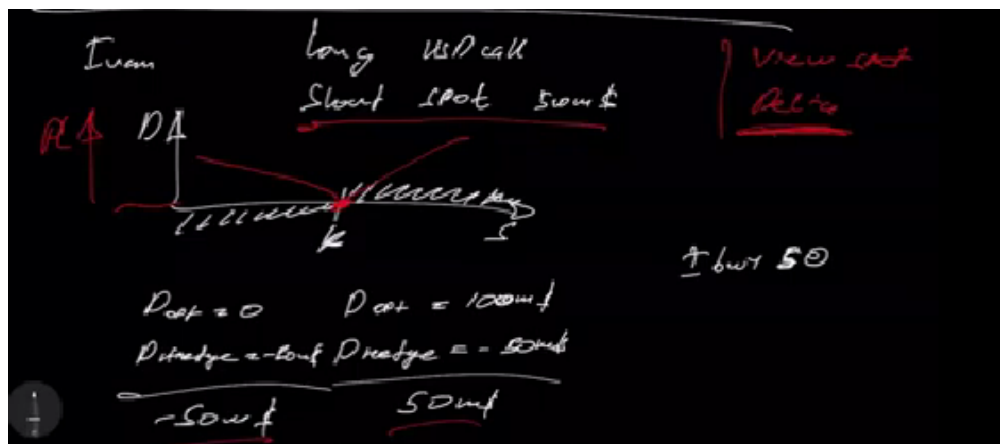 Long USD call
Short SPOT 50m$
View spot
Delta
D
K
S
I buy 50
Dopt = 0 Dopt = 100m$
Dhedge = -50m$ Dhedge = - 50m$
-50m$ 50m$